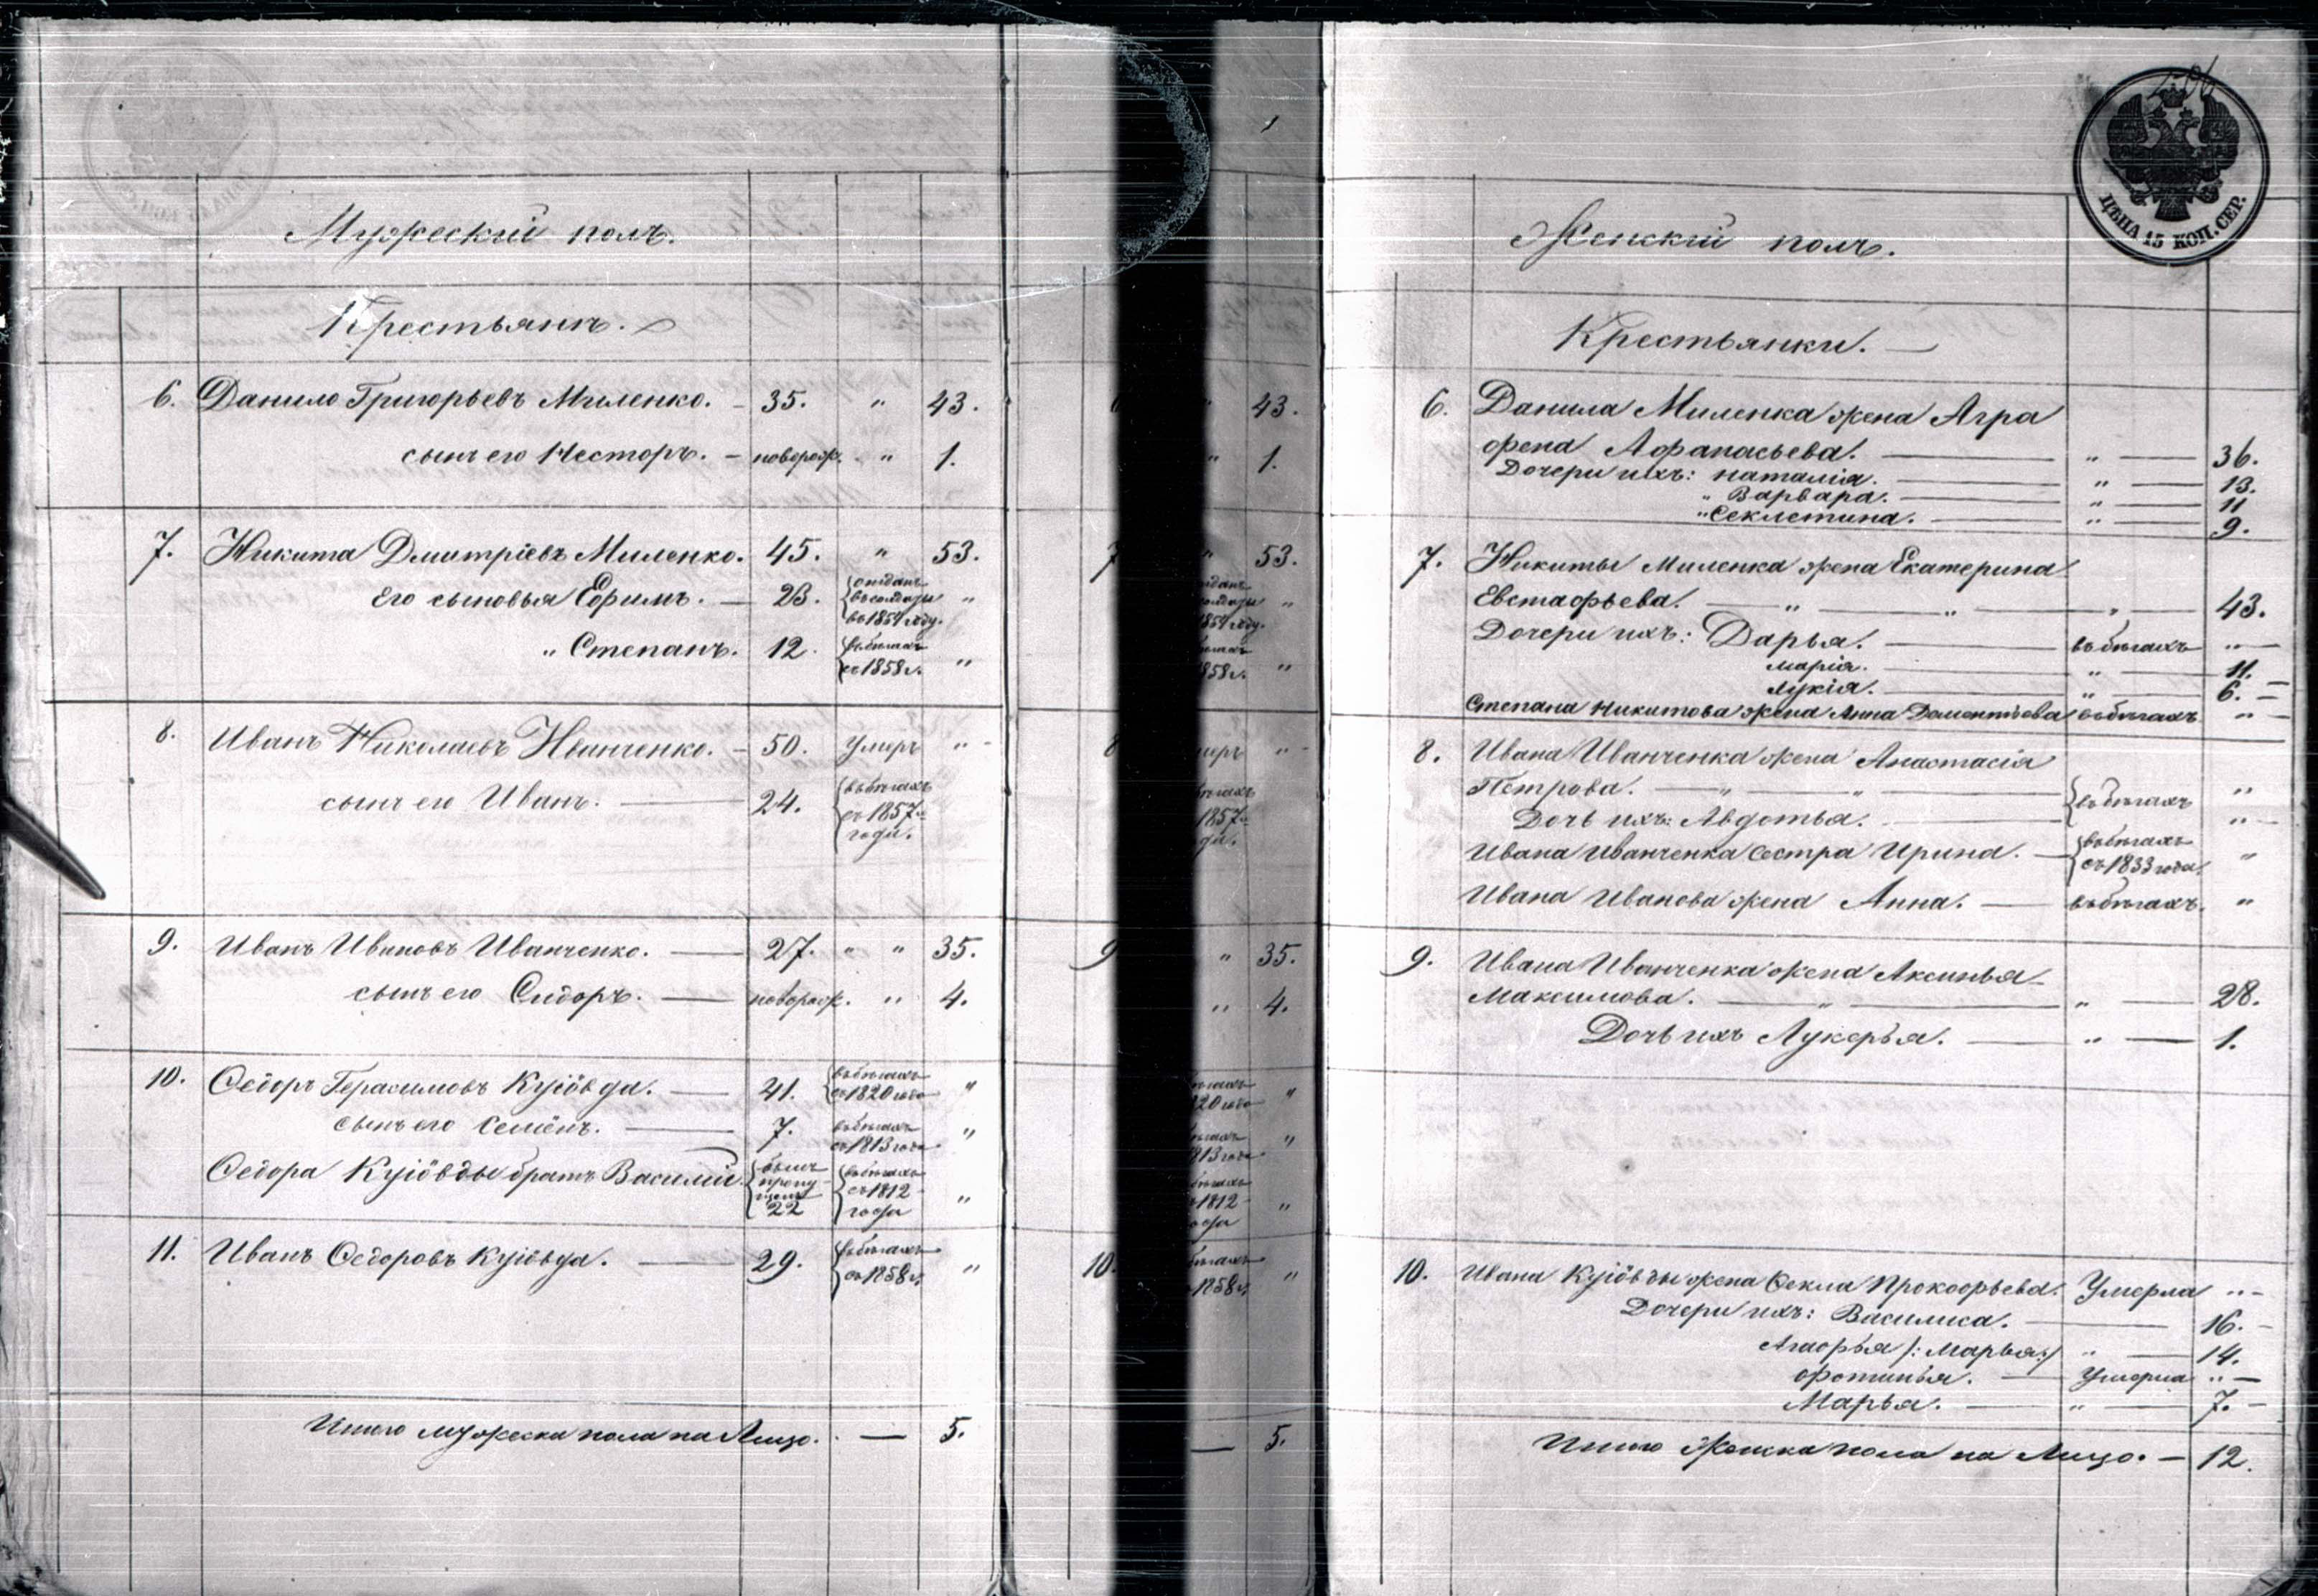 Мужескій полъ.
Крестьянъ.
6. Данило Григорьевъ Миленко. - 35. " 43.
сынъ его Несторъ. - новорож. " 1.
7. Никита Дмитріевъ Миленко. 45. " 53.
Его сыновья Ефимъ. — 23. отданъ въ солдаты въ 1854 году. "
" Степанъ. 12. въ бѣгахъ съ 1858 г. "
8. Иванъ Николаевъ Иванченко. - 50. Умеръ "
сынъ его Иванъ. — 24. въ бѣгахъ съ 1857 года. "
9. Иванъ Ивановъ Иванченко. — 27. " " 35.
сынъ его Сидоръ. — новорож. " 4.
10. Ѳедоръ Герасимовъ Куіовда. — 41. въ бѣгахъ съ 1820 года "
сынъ его Семёнъ. — 7. въ бѣгахъ съ 1813 года "
Ѳедора Куіовды братъ Василій. былъ пропущенъ 22 въ бѣгахъ съ 1812 года "
11. Иванъ Ѳедоровъ Куіовда. — 29. въ бѣгахъ съ 1858 г. "
Итого мужеска пола на Лицо. — 5.
43.
1.
53.
35.
4.
10.
5.
206
ЦѢНА 15 КОП. СЕР.
Женскій полъ.
Крестьянки. —
6. Данила Миленка жена Агра
фена Афанасьева. — " — 36.
Дочери ихъ: Наталія. — " — 13.
" Варвара. — " — 11
" Секлетина. — " — 9.
7. Никиты Миленка жена Екатерина
Евстафьева. — " — " — " — 43.
Дочери ихъ: Дарья. — въ бѣгахъ " —
Марія. — " — 11. —
Лукія. — " — 6. —
Степана Никитова жена Анна Дементьева въ бѣгахъ " —
8. Ивана Иванченка жена Анастасія
Петрова. — " — " — въ бѣгахъ "
Дочь ихъ: Авдотья. — " —
Ивана Иванченка сестра Ирина. — въ бѣгахъ съ 1833 года. "
Ивана Иванова жена Анна. — въ бѣгахъ. "
9. Ивана Иванченка жена Аксинья
Максимова. — " — " — 28.
Дочь ихъ Лукерья. — " — 1.
10. Ивана Куіовды жена Ѳекла Прокофьева. Умерла " -
Дочери ихъ: Василиса. — 16. -
Агафья /: Марья :/ " — 14.
Фотинья. — Умерла " —
Марья. — " — 7. -
Итого Женска пола на Лицо. — 12.